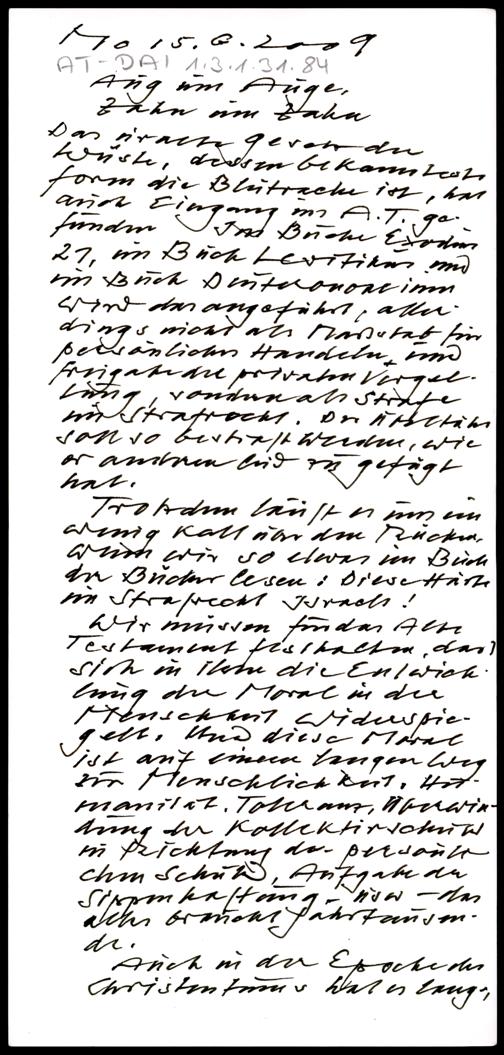 Mo 15.6.2009
AT-DAI 1.3.1.31.84
Aug um Auge,
Zahn um Zahn
Das uralte Gesetz der
Wüste, dessen bekannteste
Form die Blutrache ist, hat
auch Eingang ins A.T. ge-
funden. Im Buche Exodus
21, im Buch Levitikus und
im Buch Deuteronomium
wird das angeführt, aller-
dings nicht als Maßstab für
persönliches Handeln und
Freigabe der privaten Vergel-
tung, sondern als Strafe
im Strafrecht. Der Übeltäter
soll so bestraft werden, wie
er andren Leid zugefügt
hat.
Trotzdem läuft es uns ein
wenig kalt über den Rücken,
wenn wir so etwas im Buch
der Bücher lesen: Diese Härte
im Strafrecht Israels!
Wir müssen für das Alte
Testament festhalten, dass
sich in ihm die Entwick-
lung der Moral in der
Menschheit widerspie-
gelt. Und diese Moral
ist auf einem langen Weg
zur Menschlichkeit. Hu-
manität, Toleranz, Überwin-
dung der Kollektivschuld
in Richtung der persönli-
chen Schuld, Aufgabe der
Sippenhaftung - usw - das
alles braucht Jahrtausen-
de.
Auch in der Epoche des
Christentums hat es lange,